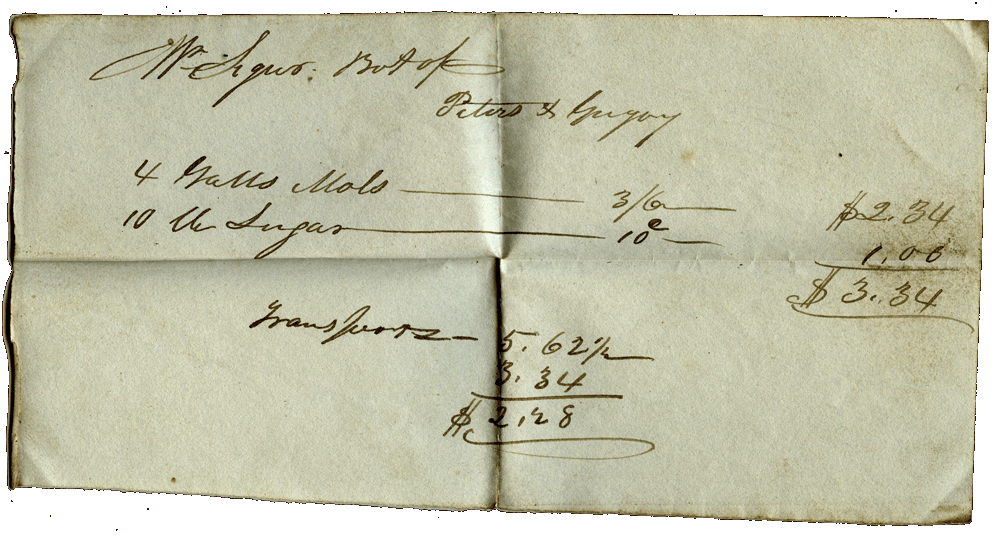 Wm Segur. Bot of
Peters & Gregory
4 Galls Mols — 3/6 — $2.34
10 lb Sugar — 10c — 1.00
$3.34
Transport — 5.62½
3.34
$2.28